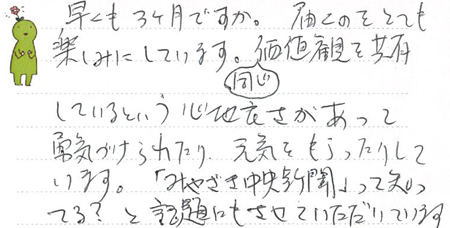 早くも3ヶ月ですか。届くのをとても
楽しみにしています。価値観を共有
同じ
しているという心地良さがあって
勇気づけられたり、元気をもらったりして
います。「みやざき中央新聞」って知っ
てる?と話題にもさせていただいています